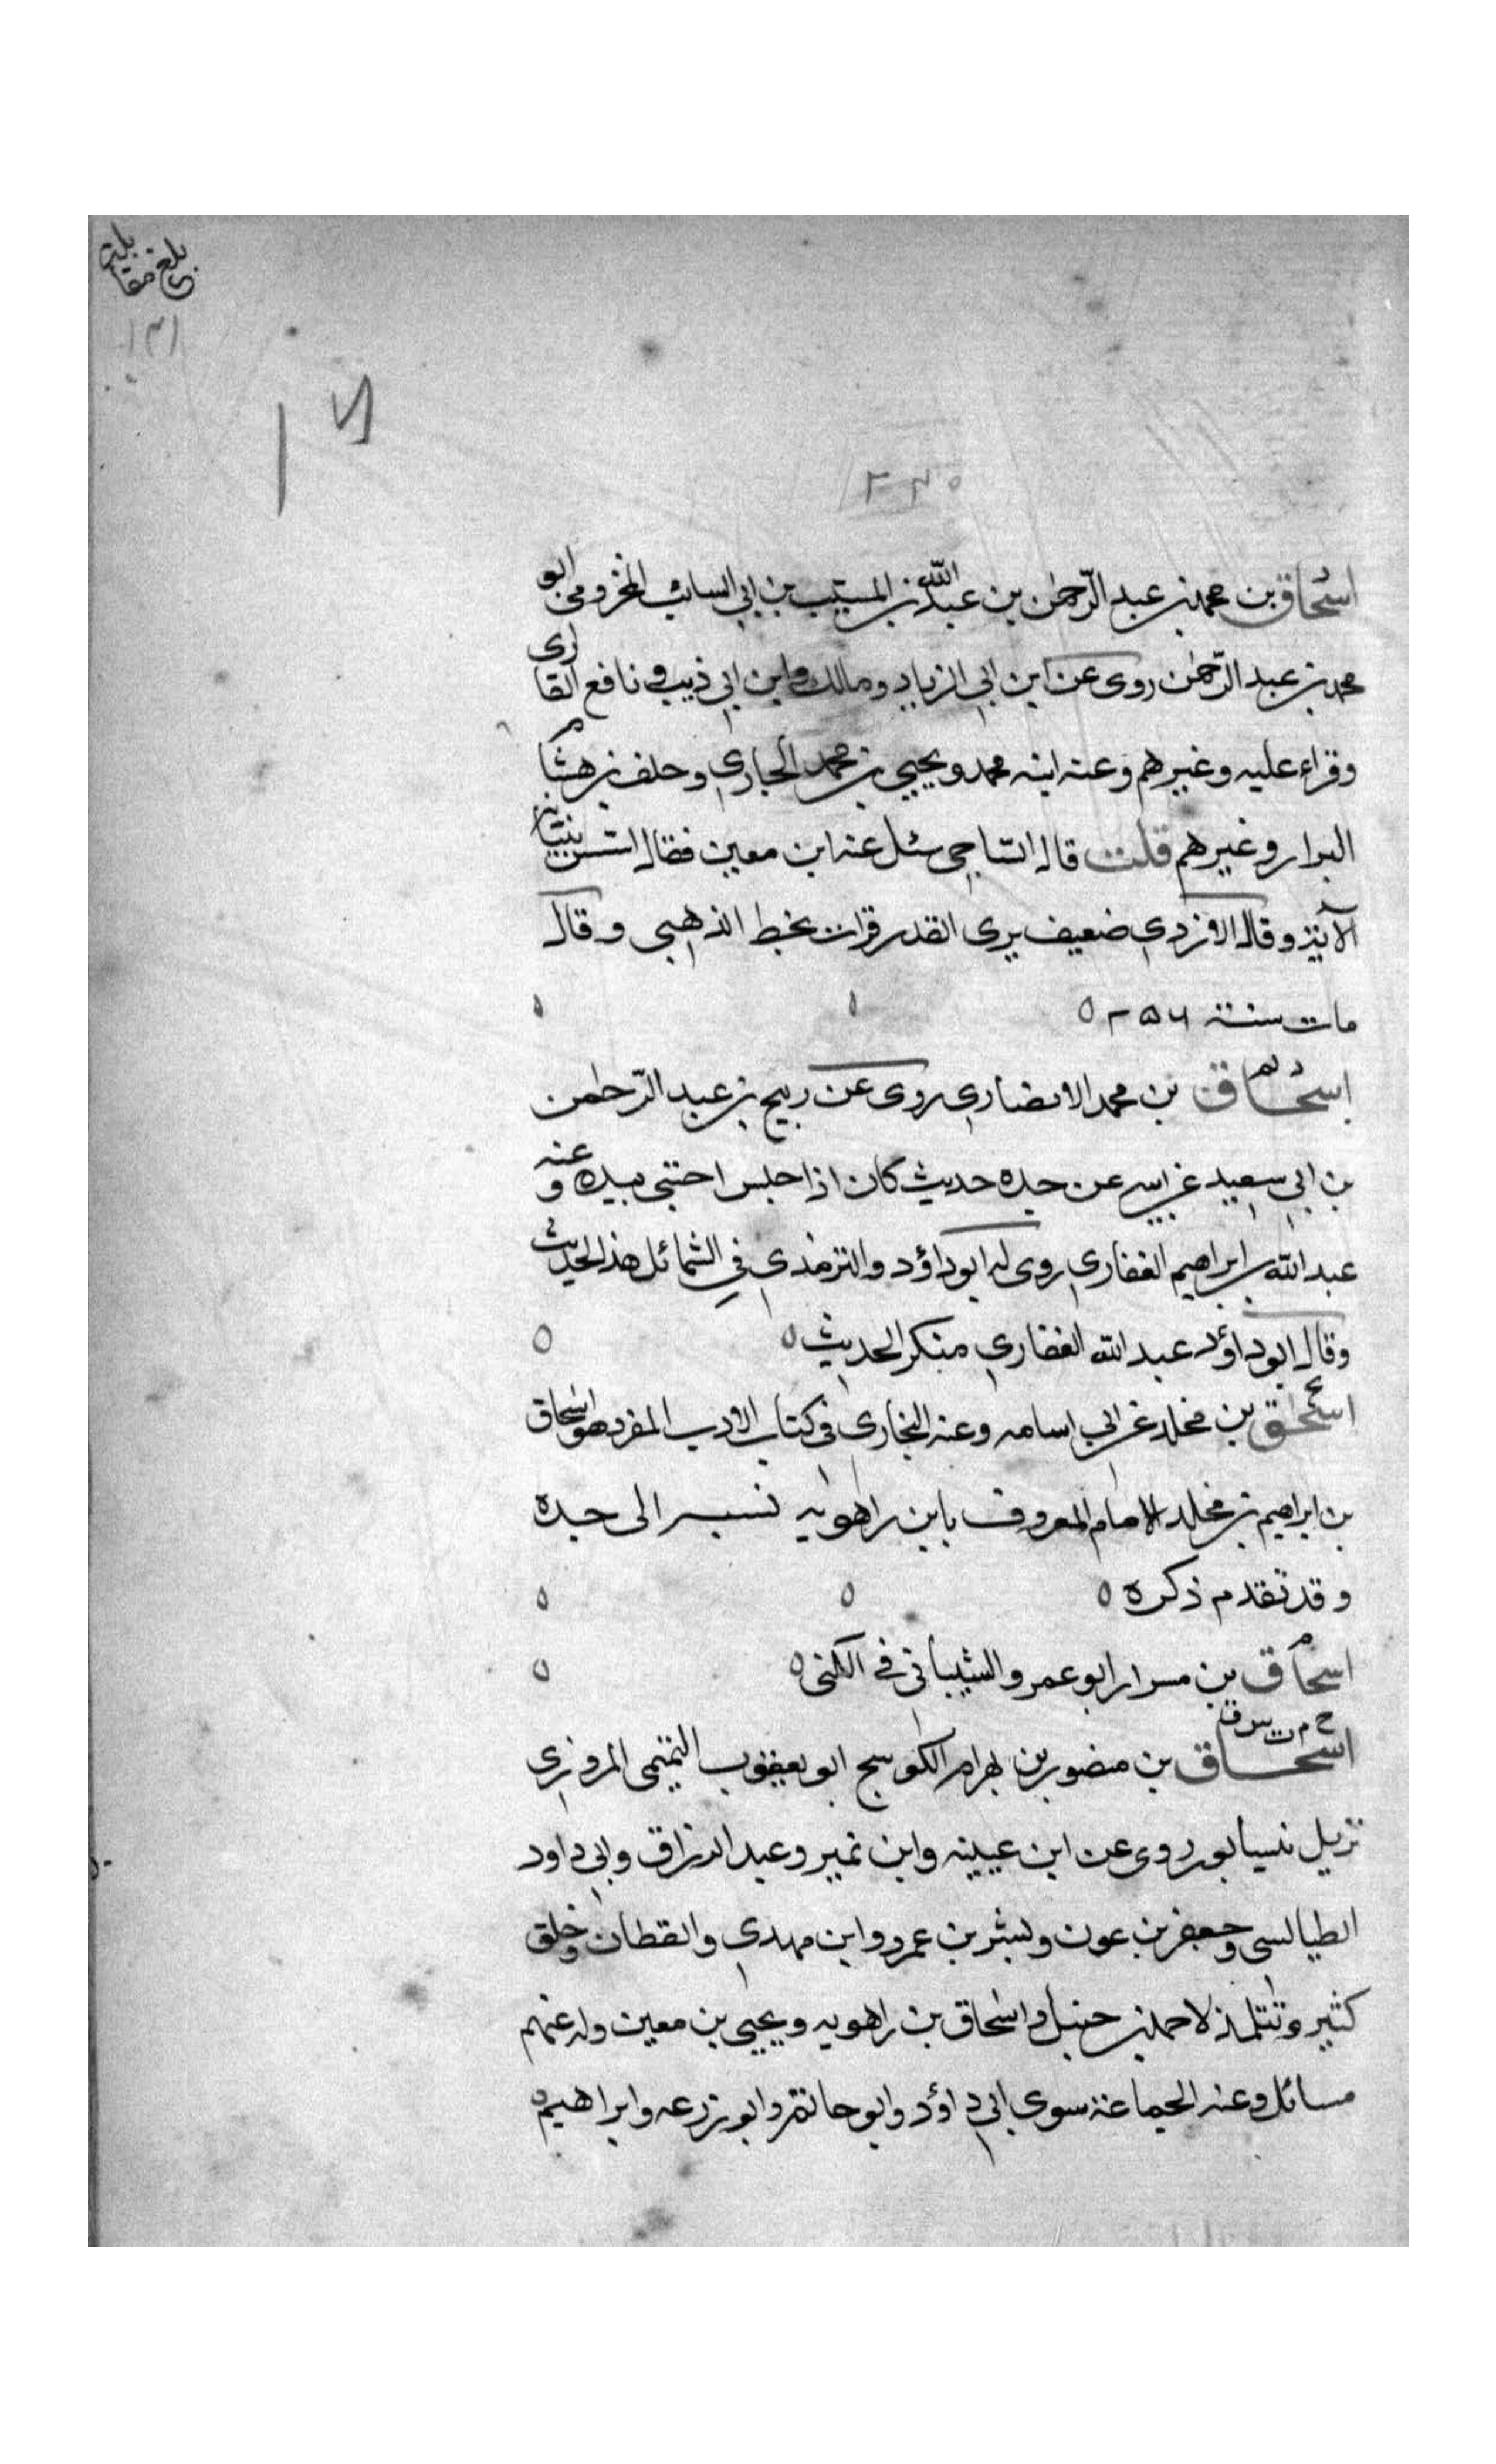 بلغ مقابلة
١٣١
اسحاق بن محمد بن عبد الرّحمن بن عبد اللّه بن المسيّب بن ابي السائب المخزومي ابو
محمد بن عبد الرّحمن روى عن ابن ابي الزياد ومالك وابن ابي ذيب و نافع القارى
وقراء عليه وغيرهم وعنه ابنه محمد ويحيى بن محمد الجاري وحلف بن هشام
البزار وغيرهم قلت قال السّاجي سئل عنه ابن معين فقال
وقال الازدي ضعيف يرى القدر قرات بخط الذهبي وقال
مات سنة
اسحاق بن محمد الانصاري روى عن ربيح بن عبد الرّحمن
بن ابي سعيد عن ابيه عن جده حديث كان اذا جلس احتبى بيده وعنه
عبد الله بن ابراهيم الغفاري روى له ابو داؤد والترمذي في الشمائل هذا الحديث
وقال ابو داؤد عبد الله الغفاري منكر الحديث
اسحق بن مخلد عن ابي اسامه وعنه البخاري في كتاب الادب المفرد هو اسحاق
بن ابراهيم بن مخلد الامام المعروف بابن راهويه نسبه الى جده
وقد تقدم ذكره
اسحاق بن مرار ابو عمرو الشيباني في الكنى
خ م ت س ق
اسحاق بن منصور بن بهرام الكوسج ابو يعقوب التميمى المروزى
نزيل نيسابور روى عن ابن عيينه وابن نمير وعبد الرزاق وابي داود
الطيالسى وجعفر بن عون وبشر بن عمر وابن مهدي والقطان وخلق
كثير وتتلمذ لاحمد بن حنبل واسحاق بن راهويه ويحيى بن معين وله عنهم
مسائل وعنه الجماعة سوى ابي داؤد وابو حاتم وابو زرعه وابراهيم